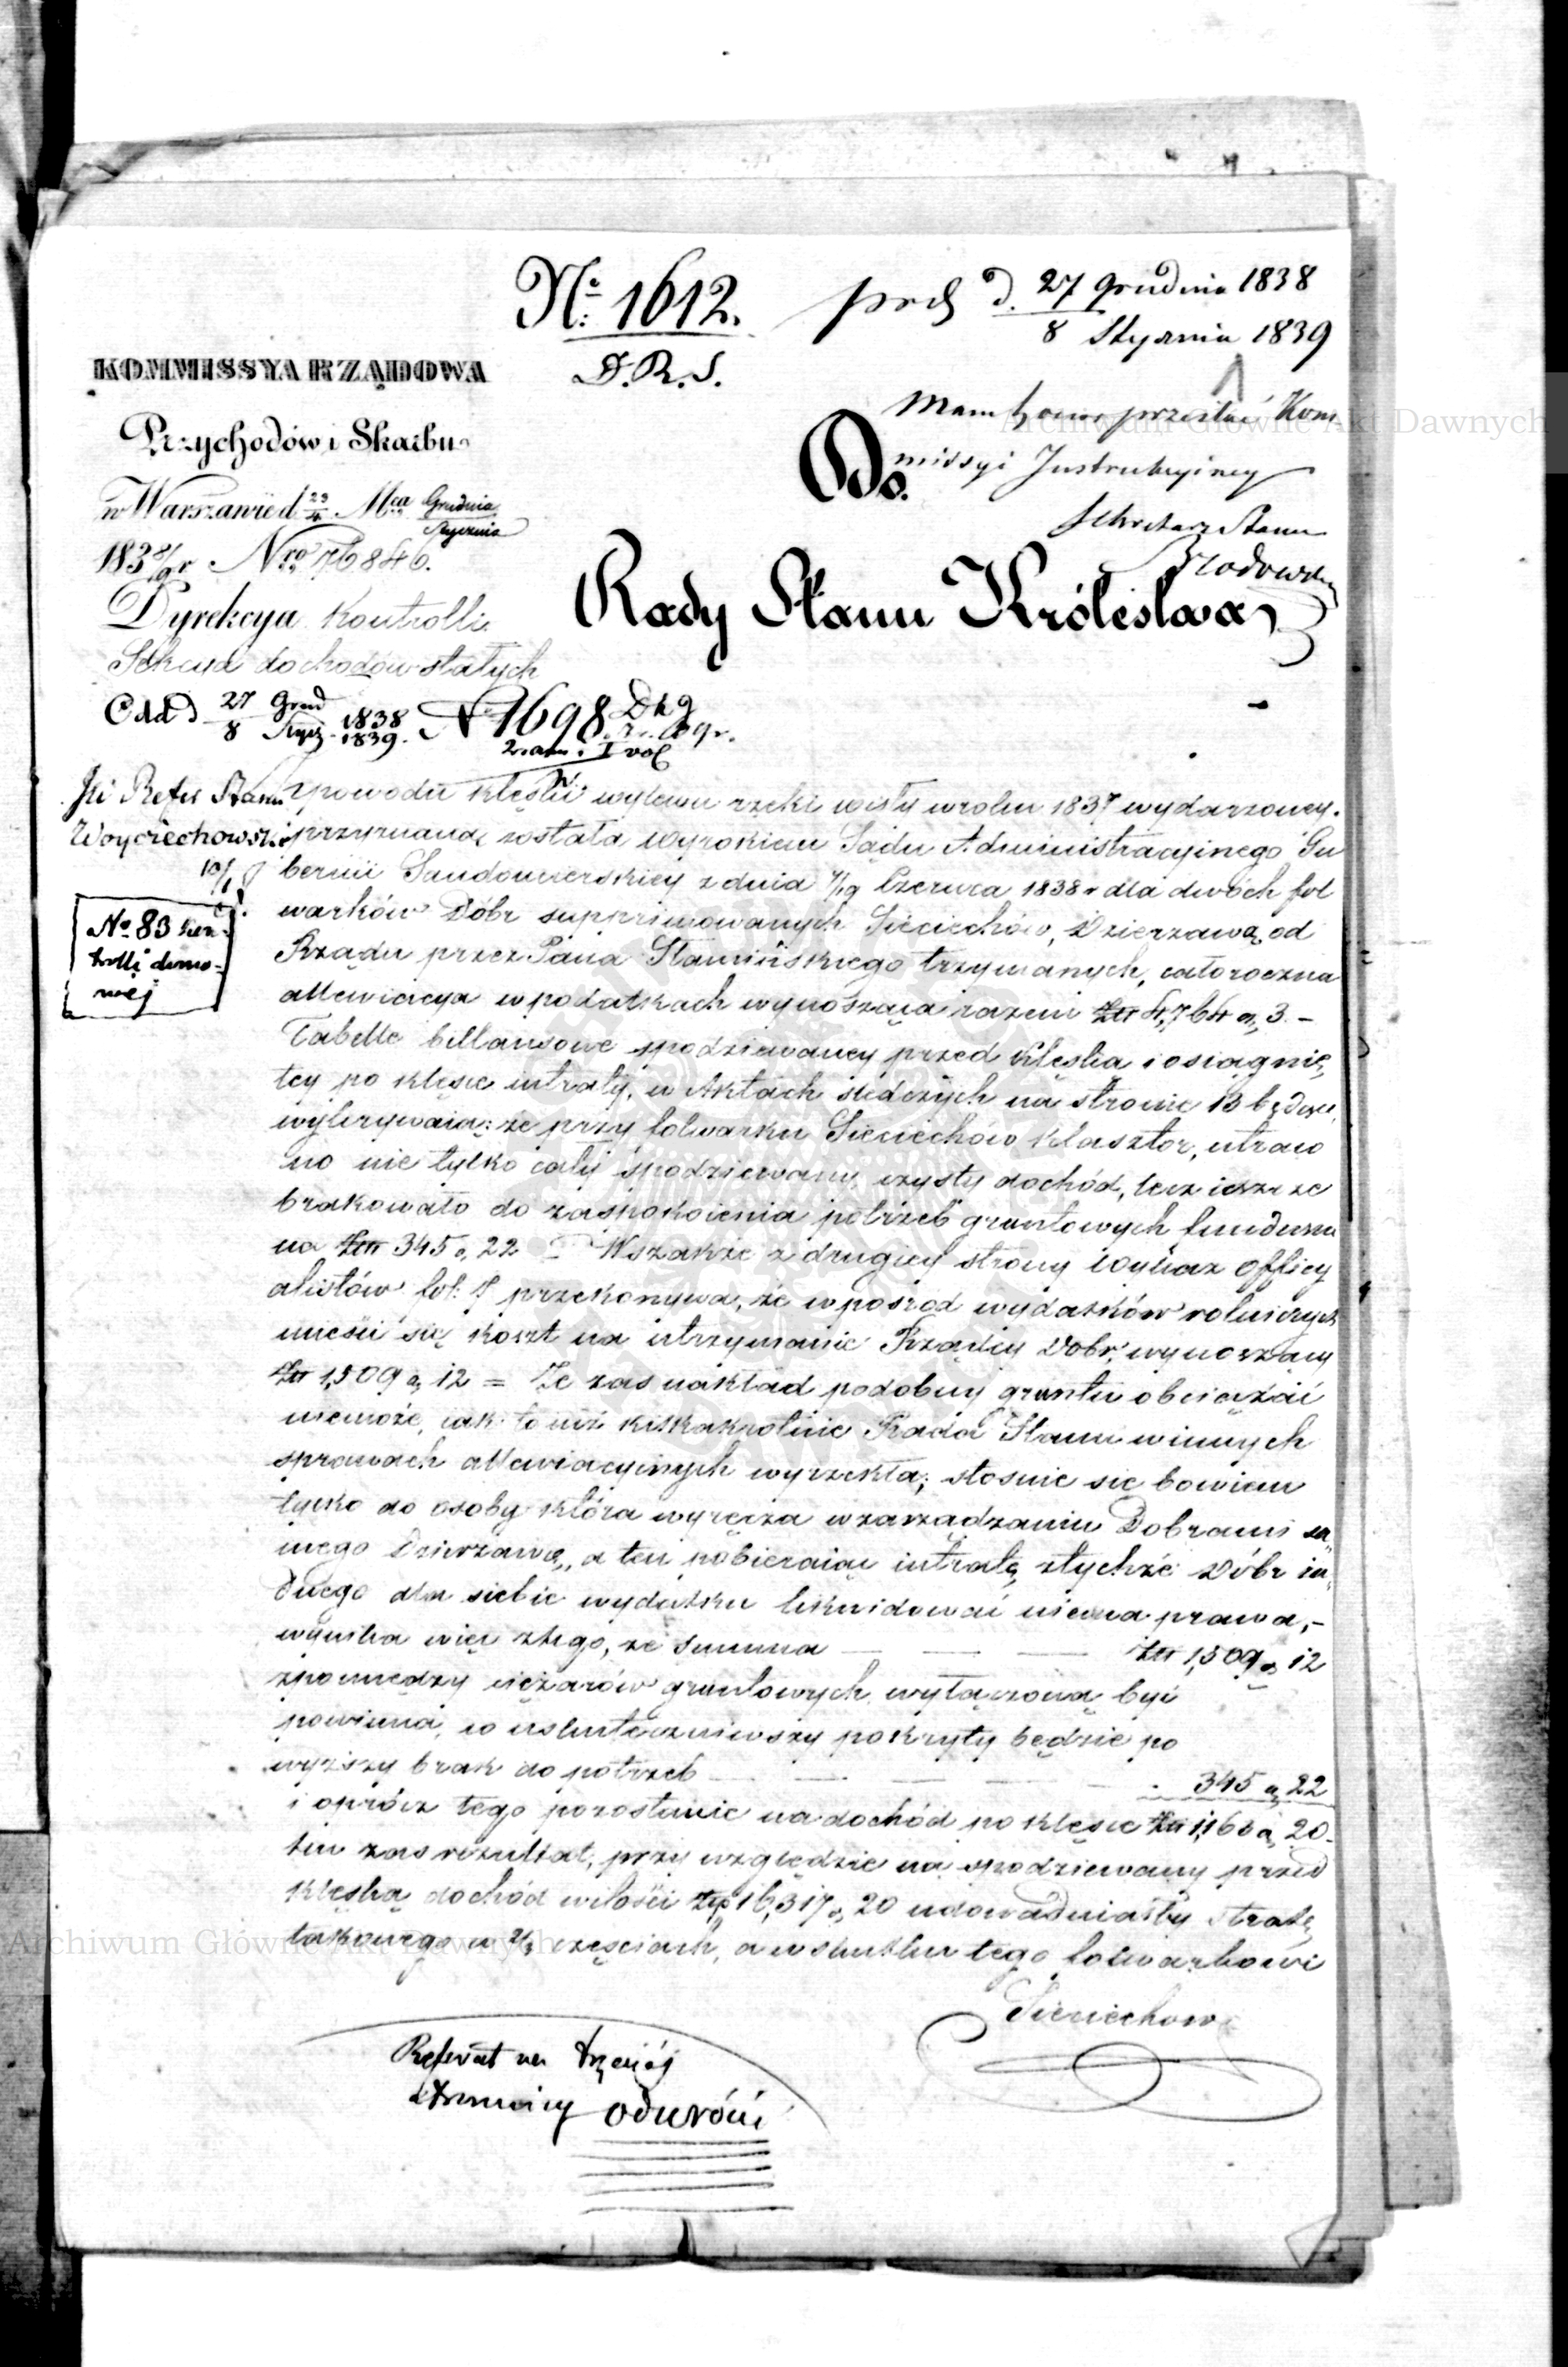 No. 1612.
D. R. S.
prod d. 27 Grudnia 1838
8 Stycznia 1839
KOMMISSYA RZĄDOWA
Przychodów i Skarbu
w Warszawie d 23/4 Mca Grudnia
Stycznia
1838/9 r Nro 76846.
Dyrekcya Kontrolli
Sekcya dochodów stałych
Mam honor przesłać Kom
missyi Instrukcyiney
Sekretarz Stanu
Do.
Rady Stanu Królestwa
Odd d 27 Grud 1838
8 Stycz 1839. N 1698.
I vol
JW Refer Stanu
Woyciechowski
No 83 kon-
trolli
Z powodu klęski wylewu rzeki Wisły w roku 1837 wydarzoney.
przyznaną została wyrokiem Sądu Administracyinego Gu
bernii Sandomierskiey z dnia 7/19 Czerwca 1838 r dla dwóch fol
warków Dóbr supprimowanych Sieciechów, Dzierzawą od
Rządu przez Pana Słamińskiego trzymanych, całoroczna
allewiacya w podatkach wynosząca razem Złł 4,764 g, 3 –
Tabelle billansowe spodziewaney przed klęską i osiągnię
tey po klęsce intraty, w Aktach śledczych na stronie 13 będące,
wykrywaią: że przy folwarku Sieciechów klasztor, utraco
no nie tylko cały spodziewany czysty dochód, lecz ieszcze
brakowało do zaspokoienia potrzeb gruntowych funduszu
na Złł 345 g, 22 Wszakże z drugiey strony wykaz Officy
alistów fol: przekonywa, że w pośród wydatków rolniczych
mieści się koszt na utrzymanie Rządcy Dóbr, wynoszący
Złł 1,509 g, 12 = Że zaś nakład podobny gruntu obciążać
niemoże, iak to iuż kilkakrotnie Rada Stanu w innych
sprawach allewiacyinych wyrzekła; stosuie się bowiem
tylko do osoby która wyręcza w zarządzaniu Dobrami sa
mego Dzierzawcę, a ten pobieraiąc intratę z tychże Dóbr ża
dnego dla siebie wydatku likwidować niema prawa, –
wynika więc z tego, że summa — — — Złł 1,509 g, 12
z pomiędzy ciężarów gruntowych wyłączoną być
powinna, co uskuteczniwszy pokryty będzie po
wyższy brak do potrzeb — — — — 345 g, 22
i oprócz tego pozostanie na dochód po klęsce Złł 1,163 g, 20.
ten zaś rezultat, przy względzie na spodziewany przed
klęską dochód w ilości Złp 16,317 g, 20 udowadniałby stratę
takowego w 2/3 częściach, a w skutku tego folwarkowi
Sieciechow
Referat na trzeciéj
stronnicy odwróć
Archiwum Główne Akt Dawnych
Archiwum Główne Akt Dawnych